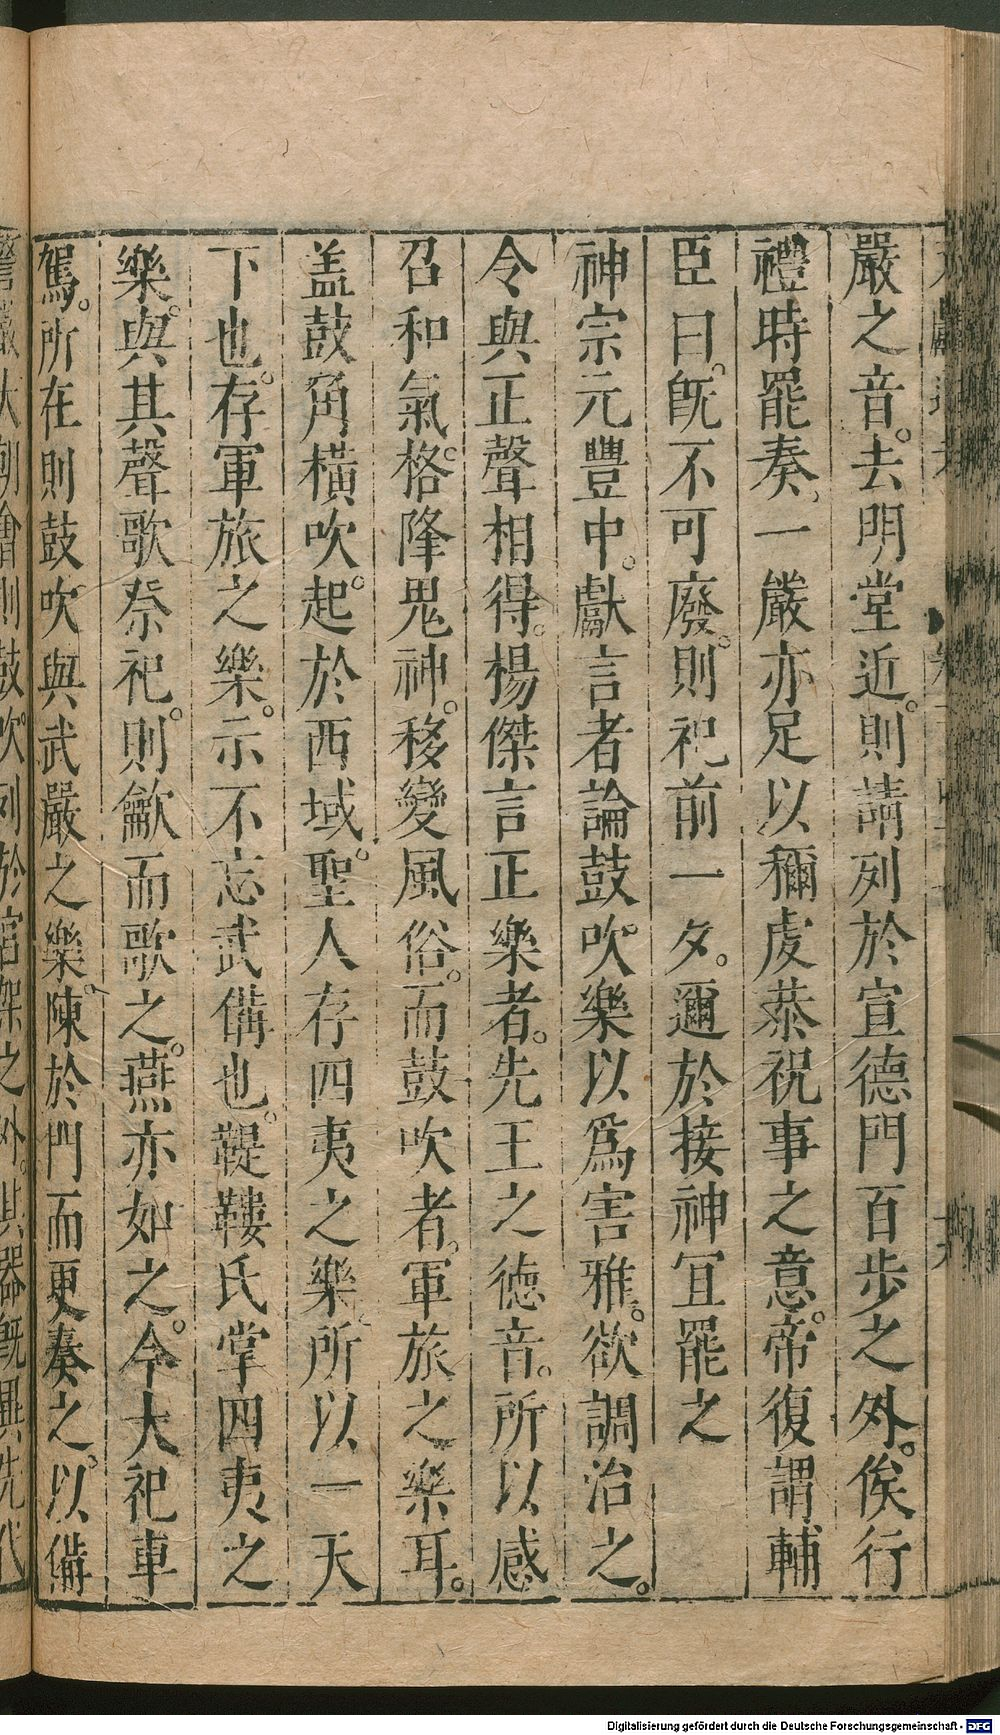 嚴之音。去明堂近。則請列於宣德門百步之外。俟行
禮時罷奏、一嚴亦足以稱虔恭祝事之意。帝復謂輔
臣曰。旣不可廢。則祀前一夕。邇於接神冝罷之
神宗元豐中。獻言者論鼓吹樂以爲害雅。欲調治之。
令與正聲相得。楊傑言正樂者。先王之德音。所以感
召和氣。格降鬼神。移變風俗。而鼓吹者。軍旅之樂耳。
盖鼓角橫吹。起於西域。聖人存四夷之樂。所以一天
下也。存軍旅之樂。示不忘武備也。鞮鞻氏掌四夷之
樂。與其聲歌祭祀。則龡而歌之。燕亦如之。今大祀車
駕。所在則鼓吹與武嚴之樂。陳於門而更奏之。以備
警嚴大朝會則鼓吹列於宮架之外。其器旣異先代
Digitalisierung gefördert durch die Deutsche Forschungsgemeinschaft - DFG